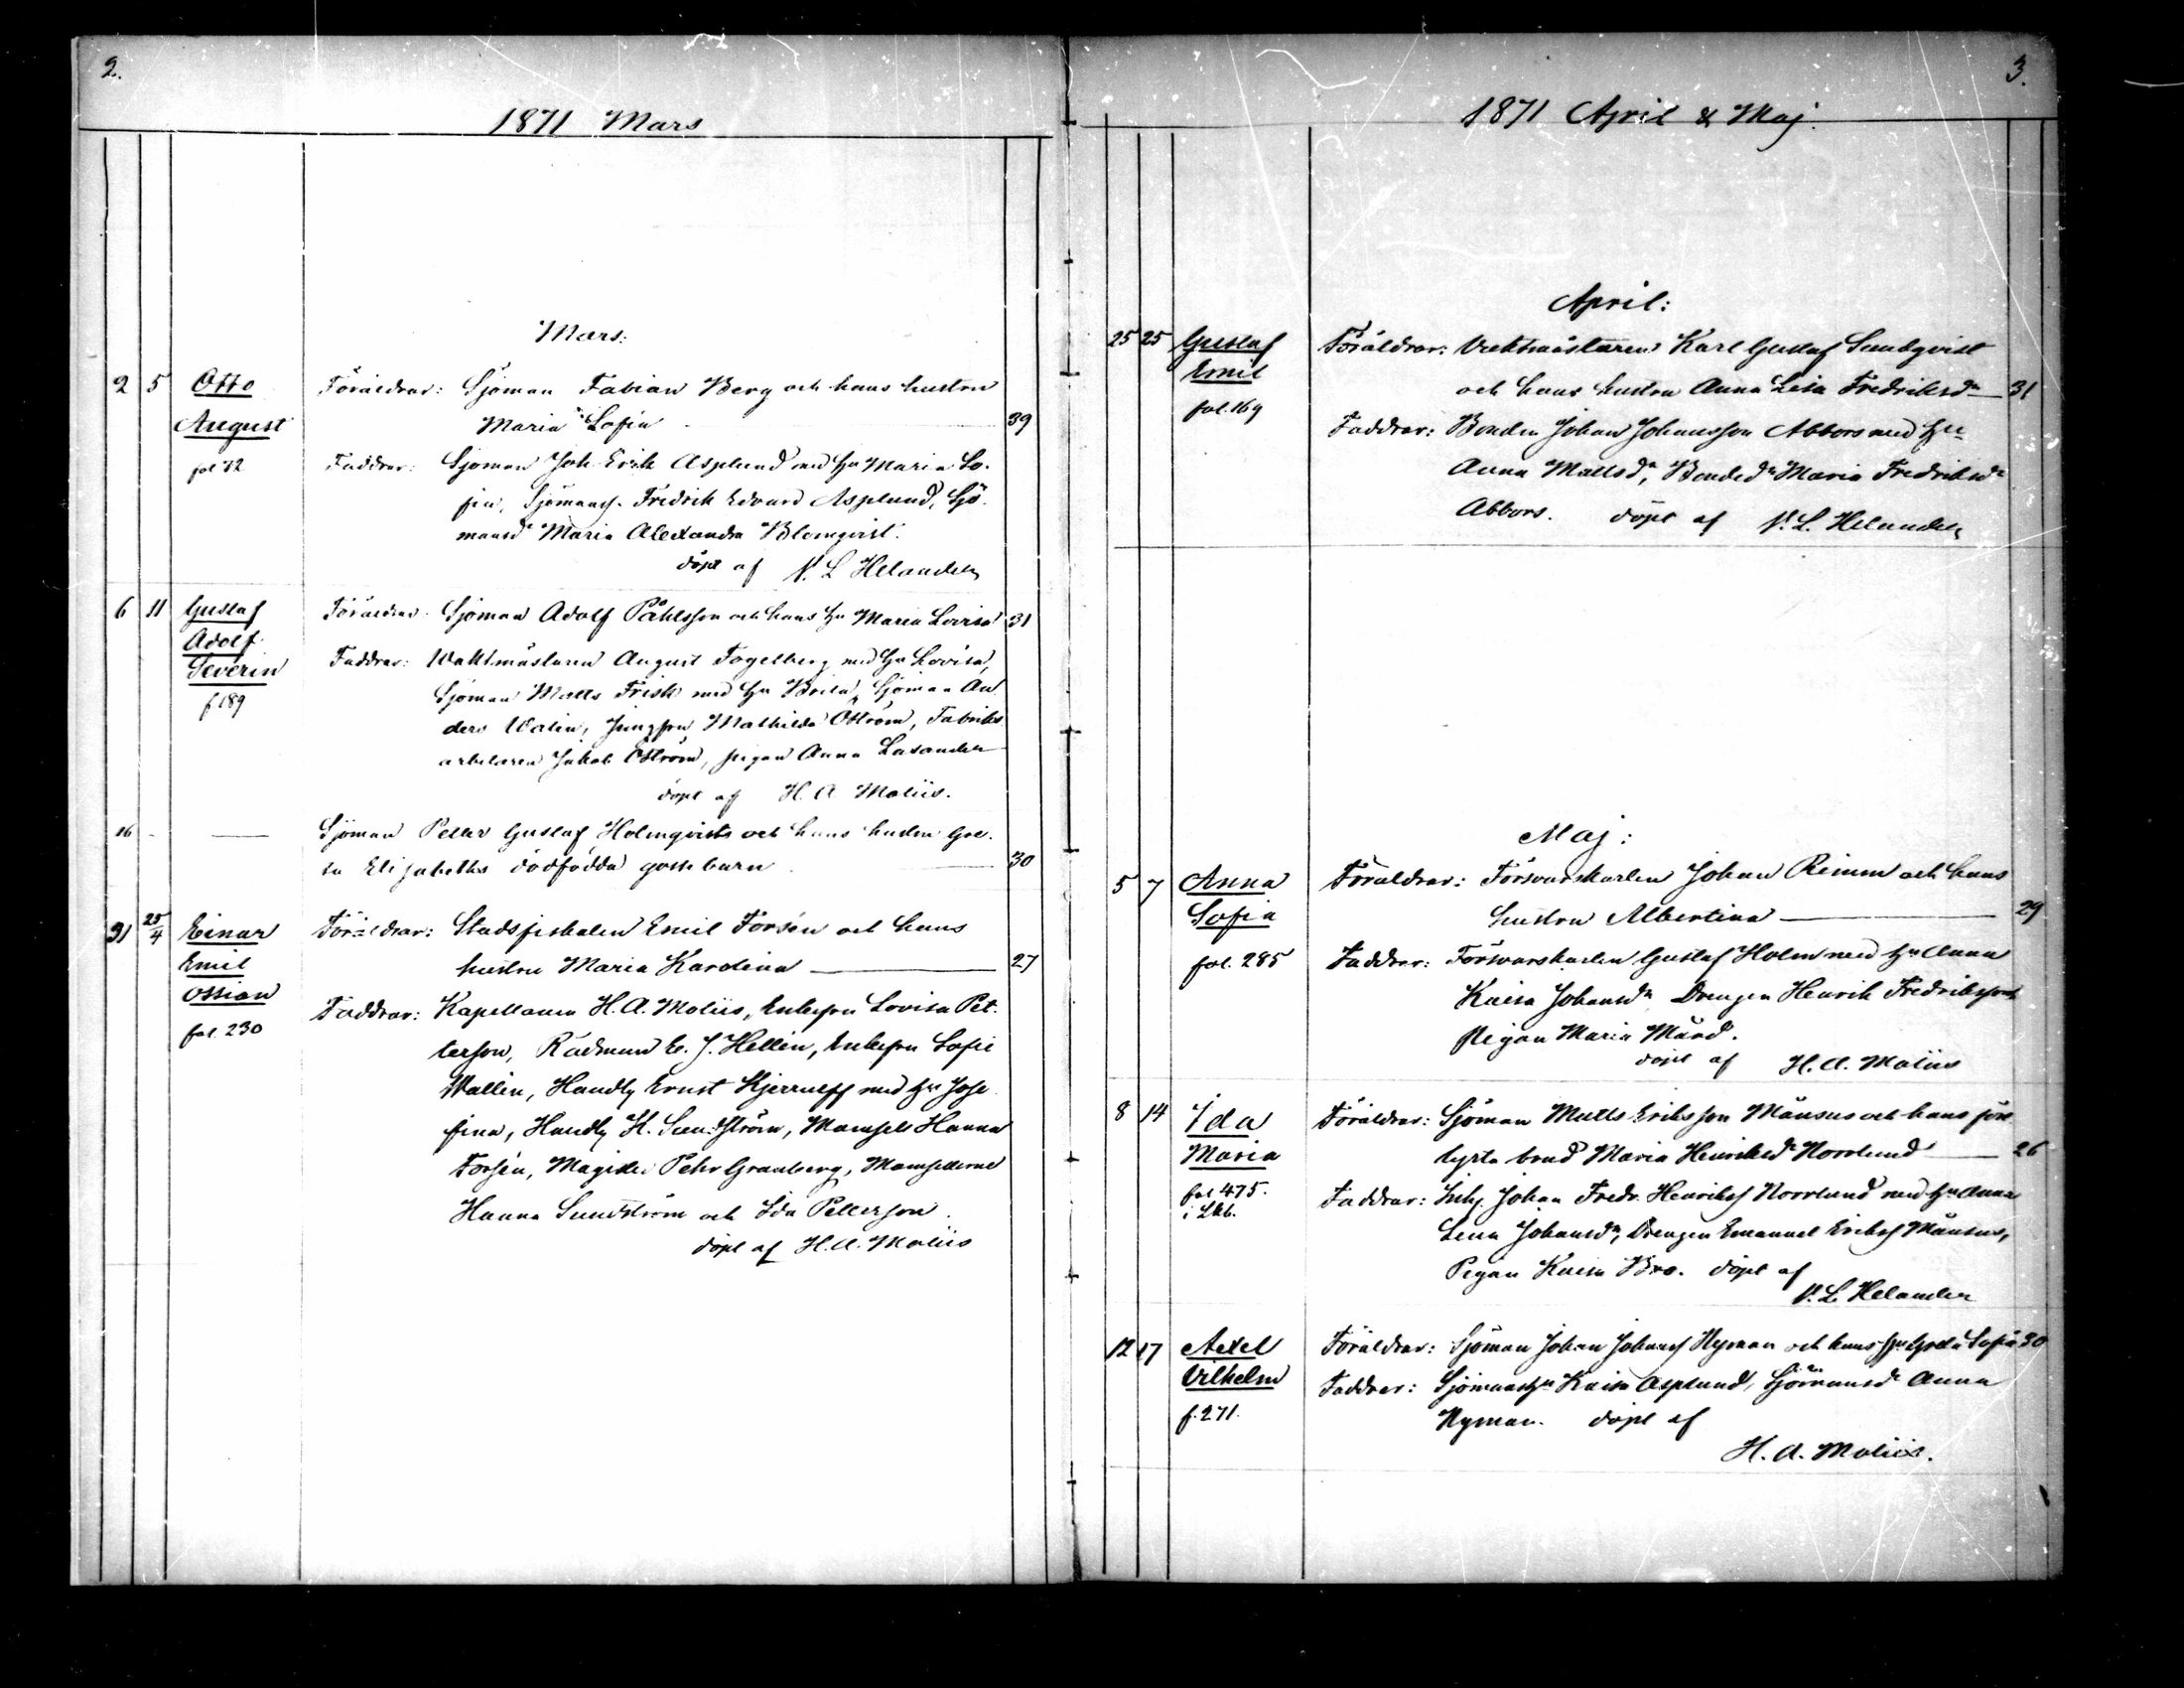 2.
1871 Mars
Mars:
2 5 Otto Föräldrar: Sjöman Fabian Berg och hans hustru
August Maria Sofia 39
fol 72 Faddrar: Sjöman Joh Erik Asplund med Hu Maria So-
fia, Sjömans. Fredrik Edvard Asplund, Sjö-
mansdr Maria Alexandra Blomqvist.
döpt af V. L Helander
6 11 Gustaf Föräldrar Sjöman Adolf Påhlsson och hans Hu Maria Lovisa 31
Adolf Faddrar: Waktmästaren August Fogelberg med Hu Lovisa,
Severin Sjöman Matts Frisk med Hu Brita, Sjöman An
f 189 ders Walin, Jungfru Mathilda Öström, Fabriks
arbetaren Jakob Öström, pigan Anna Lasander
döpt af H. A Moliis.
16 - — Sjöman Petter Gustaf Holmqvists och hans hustru Gre-
ta Elisabeths dödfödda gossebarn 30
31 25/4 Einar Föräldrar: Stadsfiskalen Emil Forsén och hans
Emil hustru Maria Karolina — 27
Ossian Faddrar: Kapellanen H. A. Moliis, Enkefru Lovisa Pet-
fol. 230 terson, Rådman E. J. Hellén, Enkefru Sofie
Wallin, Handl Ernst Kjerrulff med Hu Jose
fina, Handl H. Sundström, Mamsell Hanna
Forsén, Magister Pehr Granberg, Mamsellerna
Hanna Sundström och Ida Petterson.
döpt af H. A. Moliis
3.
1871 April & Maj.
April:
25 25 Gustaf Föräldrar: Vaktmästaren Karl Gustaf Sundqvist
Emil och hans hustru Anna Lisa Fredriksdr — 31
fol. 169 Faddrar: Bonden Johan Johansson Abbors med Hu
Anna Mattsdr, Bondedr Maria Fredriksdr
Abbors. döpt af V. L. Helander
Maj:
5 7 Anna Föräldrar: Försvarskarlen Johan Reinm och hans
Sofia hustru Albertina — 29
fol. 285 Faddrar: Försvarskarlen Gustaf Holm med Hu Anna
Kaisa Johansdr Drengen Henrik Fredriksson
Pigan Maria Mård.
döpt af H. A. Moliis
8 14 Ida Föräldrar: Sjöman Matts Eriksson Månsus och hans för
Maria lyfta brud Maria Henriksdr Norrlund — 26
fol 475. Faddrar: Inh. Johan Fredr. Henrikss Norrlund med Hu Anna
i Lkb. Lena Johansdr, Drengen Emanuel Erikss Månsus,
Pigan Kaisa Bro. döpt af
V. L. Helander
12 17 Axel Föräldrar: Sjöman Johan Johanss Nyman och hans Hu Greta Sofia 30
Vilhelm Faddrar: Sjömanshu Kaisa Asplund, Sjömansdr Anna
f. 271. Nyman. döpt af
H. A. Moliis.